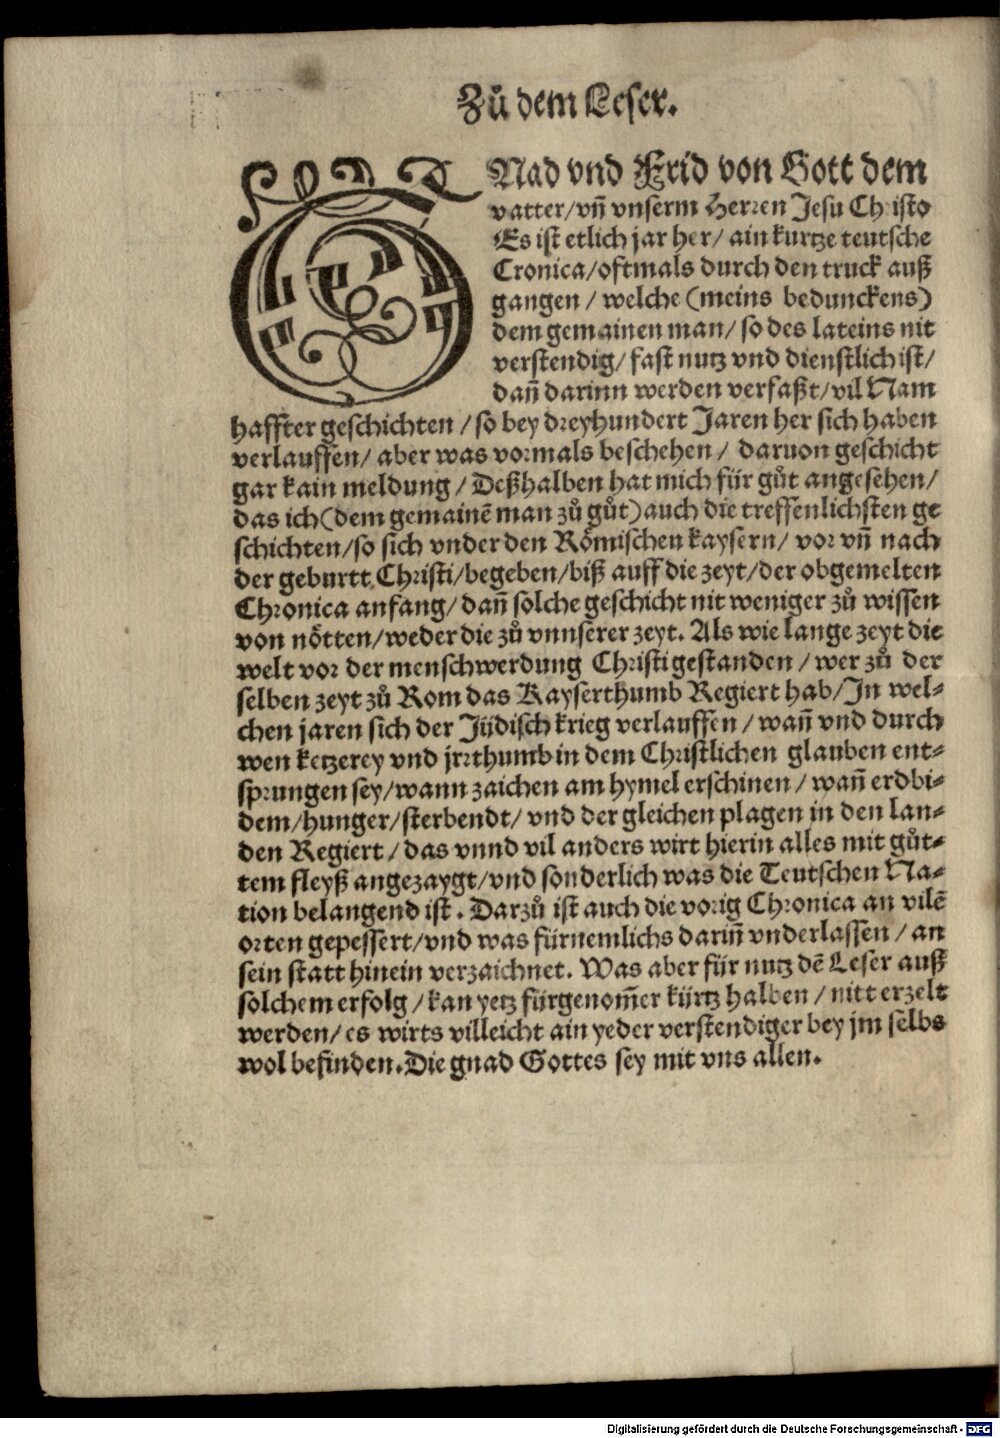 Zů dem Leser.
GNad vnd Frid von Gott dem
vatter/vñ vnserm Herren Jesu Christo
Es ist etlich jar her/ ain kurtze teutsche
Cronica/oftmals durch den truck auß
gangen / welche (meins bedunckens)
dem gemainen man/ so des lateins nit
verstendig/ fast nutz vnd dienstlich ist/
dañ darinn werden verfaßt/vil Nam
haffter geschichten /so bey dreyhundert Jaren her sich haben
verlauffen/ aber was vormals beschehen / daruon geschicht
gar kain meldung / Deßhalben hat mich für gůt angesehen/
das ich(dem gemainẽ man zů gůt)auch die treffenlichsten ge
schichten/so sich vnder den Römischen kaysern/ vor vñ nach
der geburtt Christi/begeben/biß auff die zeyt/der obgemelten
Chronica anfang/ dañ solche geschicht nit weniger zů wissen
von nötten/weder die zů vnnserer zeyt. Als wie lange zeyt die
welt vor der menschwerdung Christi gestanden /wer zů der
selben zeyt zů Rom das Kayserthumb Regiert hab/In wel-
chen jaren sich der Jüdisch krieg verlauffen / wañ vnd durch
wen ketzerey vnd jrrthumb in dem Christlichen glauben ent-
sprungen sey/wann zaichen am hymel erschinen / wañ erdbi-
dem/hunger/sterbendt/ vnd der gleichen plagen in den lan-
den Regiert / das vnnd vil anders wirt hierin alles mit gůt-
tem fleyß angezaygt/vnd sonderlich was die Teutschen Na-
tion belangend ist. Darzů ist auch die vorig Chronica an vilẽ
orten gepessert/vnd was fürnemlichs dariñ vnderlassen / an
sein statt hinein verzaichnet. Was aber für nutz dẽ Leser auß
solchem erfolg /kan yetz fürgenom̃er kürtz halben / nitt erzelt
werden/ es wirts villeicht ain yeder verstendiger bey jm selbs
wol befinden. Die gnad Gottes sey mit vns allen.
Digitalisierung gefördert durch die Deutsche Forschungsgemeinschaft - DFG